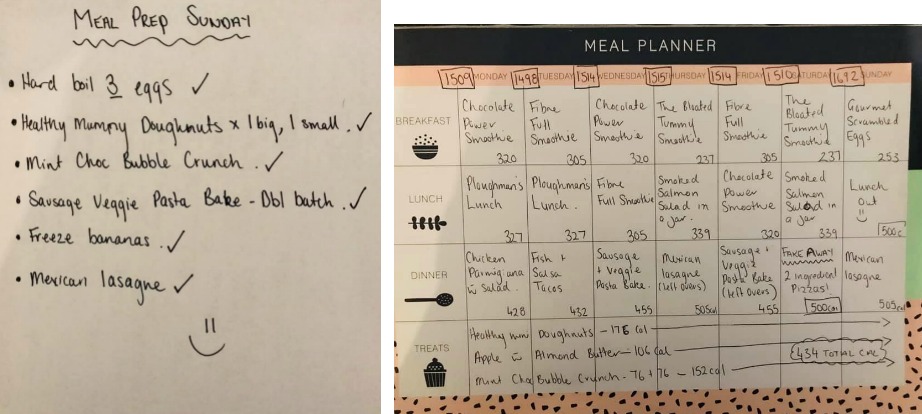 MEAL PREP SUNDAY
• Hard boil 3 eggs ✓
• Healthy Mummy Doughnuts x 1 big, 1 small. ✓
• Mint Choc Bubble Crunch. ✓
• Sausage Veggie Pasta Bake - Dbl batch. ✓
• Freeze bananas. ✓
• Mexican lasagne ✓
MEAL PLANNER
1509 MONDAY 1498 TUESDAY 1514 WEDNESDAY 1515 THURSDAY 1514 FRIDAY 1510 SATURDAY 1692 SUNDAY
BREAKFAST
Chocolate
Power
Smoothie
320
Fibre
Full
Smoothie
305
Chocolate
Power
Smoothie
320
The Bloated
Tummy
Smoothie
237
Fibre
Full
Smoothie
305
The
Bloated
Tummy
Smoothie
237
Gourmet
Scrambled
Eggs
253
LUNCH
Ploughman's
Lunch
327
Ploughman's
Lunch.
327
Fibre
Full Smoothie
305
Smoked
Salmon
Salad in
a jar.
339
Chocolate
Power
Smoothie
320
Smoked
Salmon
Salad in
a jar
339
Lunch
out
500c
DINNER
Chicken
Parmigiana
w Salad.
428
Fish +
Salsa
Tacos
432
Sausage
+ Veggie
Pasta Bake.
455
Mexican
lasagne
(left overs)
505cal
Sausage +
Veggie
Pasta Bake
(left overs)
455
FAKE AWAY
2 ingredient
Pizzas!
500cal
Mexican
lasagne
505cal
TREATS
Healthy mum Doughnuts - 176 cal
Apple w Almond Butter - 106 cal
Mint Choc Bubble Crunch - 76 + 76 - 152 cal
434 TOTAL CAL